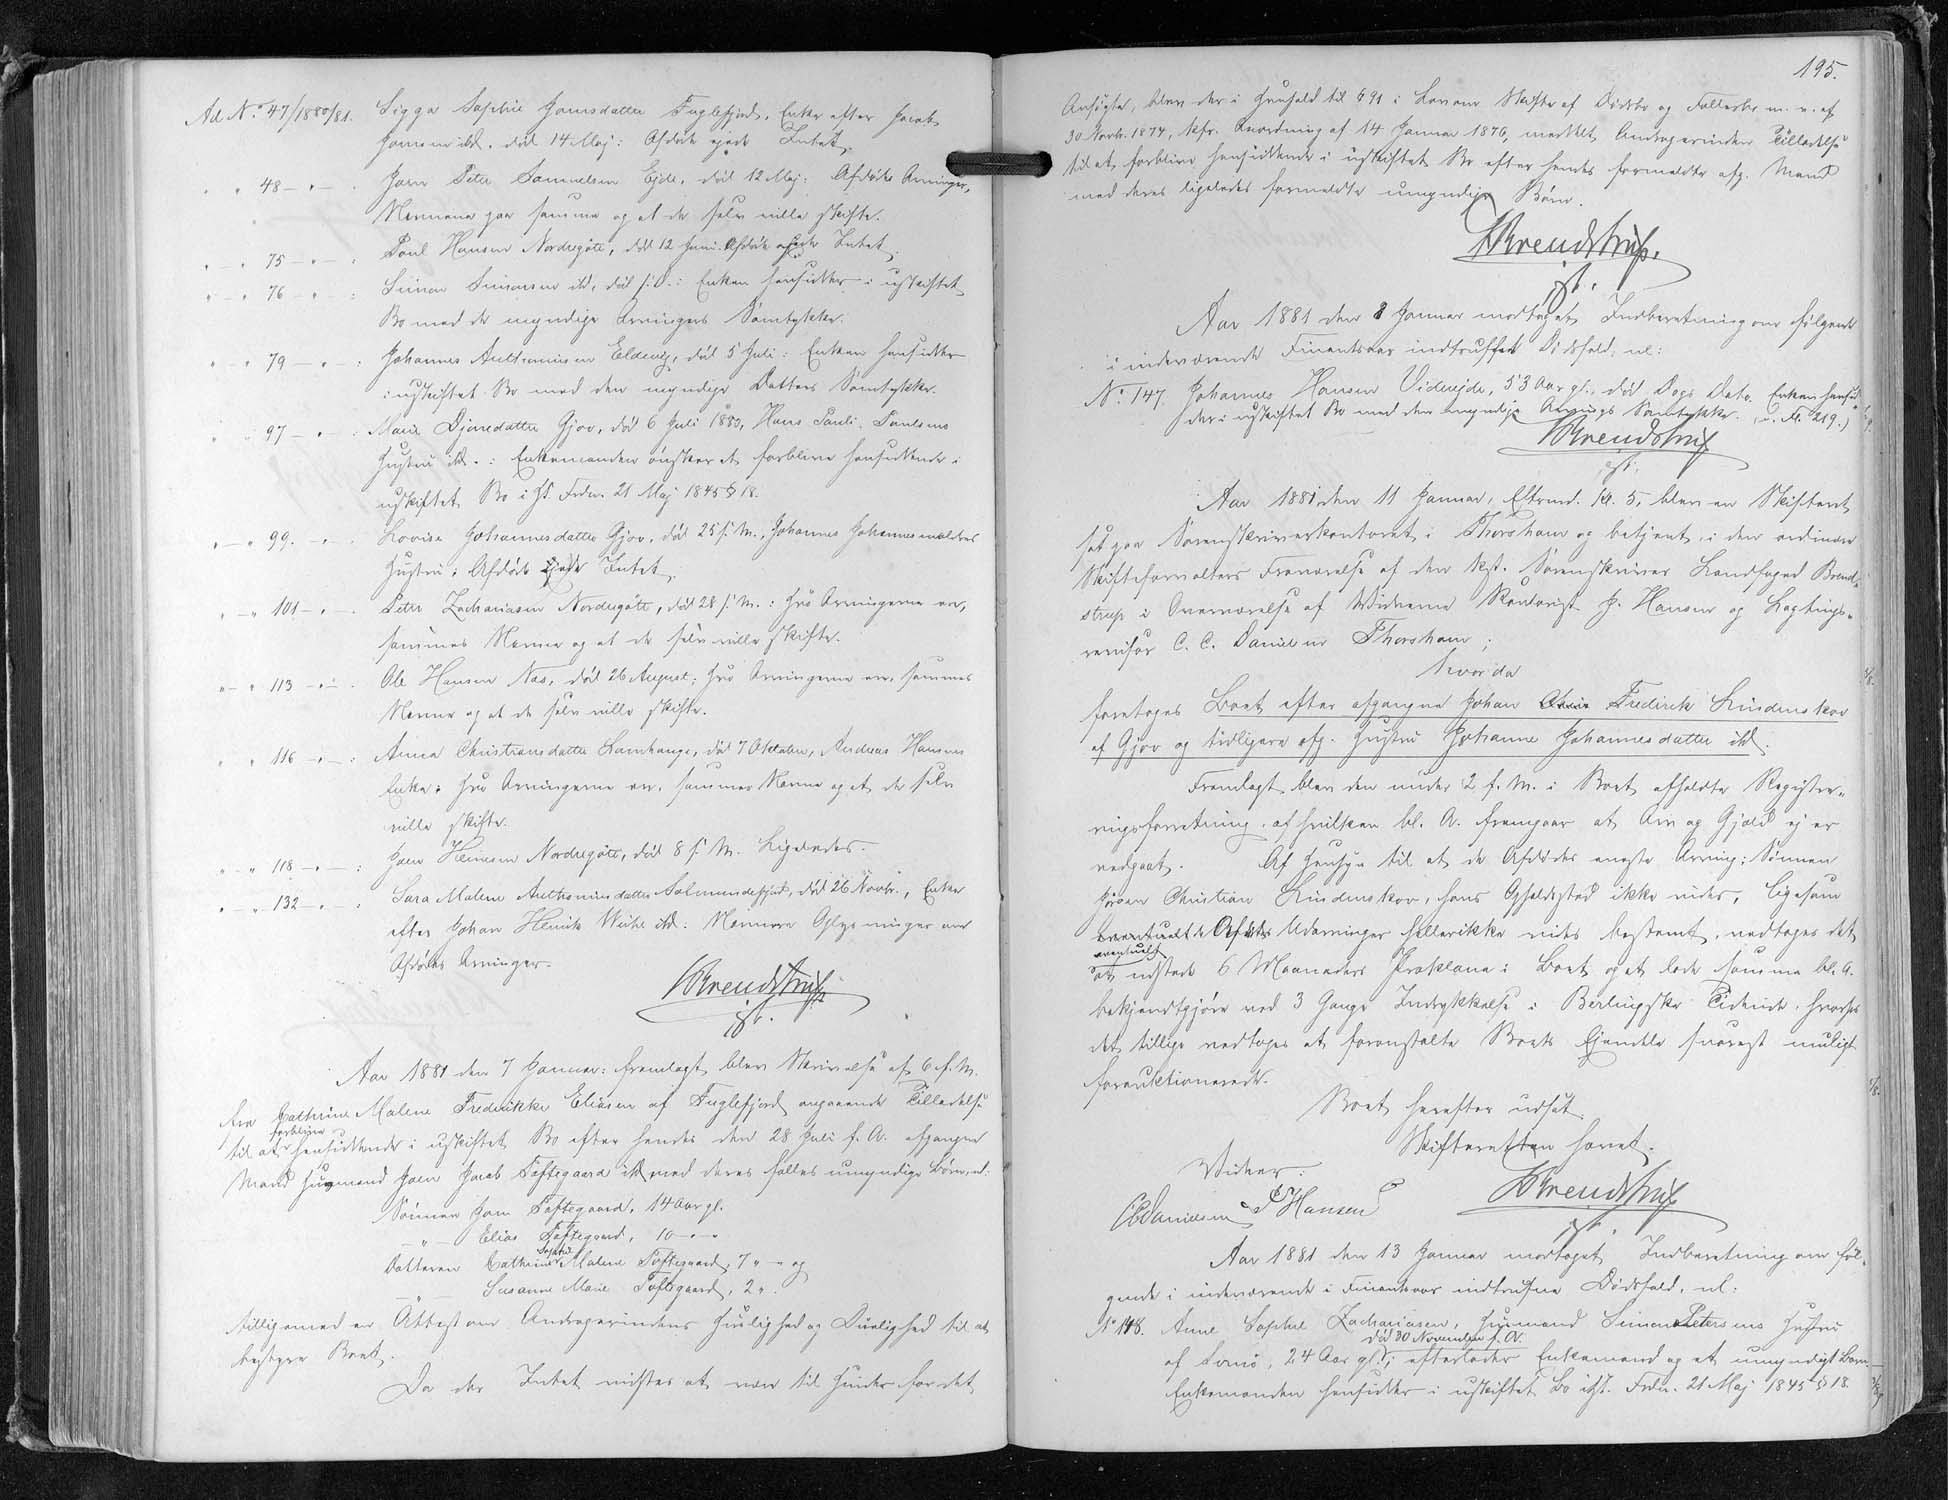 Ad No. 47/1880/81. Sigga Sophie Joensdatter Fuglefjord, Enke efter Jacob
Joensen ibd. død 14 Maj: Afdøde ejede Intet.
" - " 48 - " - . Joen Peter Samuelsen Ejde, død 12 Maj: Afdødes Arvinger,
Navnene paa samme og at de selv ville skifte.
" - " 75 - " - : Poul Hansen Nordregøte, død 12 Juni. Afdøde ejede Intet.
" - " 76 - " - : Simon Simonsen ibd, død s. D.: Enken hensidder i uskiftet
Bo med de myndige Arvingers Samtykke.
" - " 79 - " - : Johannes Anthoniussen Eldevig, død 5 Juli: Enken hensidder
i uskiftet Bo med den myndige Datters Samtykke.
" " 97 - " - : Marie Djonedatter Gjov, død 6 Juli 1880, Hans Pauli Poulsens
Hustru ibd.: Enkemanden ønsker at forblive hensiddende i
uskiftet Bo i Hf. Frdn. 21 Maj 1845 § 18.
" - " 99. - " - . Lovise Johannesdatter Gjov, død 25 s. M., Johannes Johannesens
Hustru: Afdøde ejede Intet.
" - " 101 - " - . Peter Zachariasen Nordregøte, død 28 s. M.: Hvo Arvingerne ere,
sammes Navne og at de selv ville skifte.
" - " 113 - " - . Ole Hansen Næs, død 26 August: Hvo Arvingerne ere, sammes
Navne og at de selv ville skifte.
" " 116 - " - : Anna Christiansdatter Lamhauge, død 7 Oktober, Andreas Hansens
Enke: Hvo Arvingerne ere, sammes Navne og at de selv
ville skifte.
" " 118 - " - : Joen Heinesen Nordregøte, død 8 s. M. Ligeledes.
" - " 132 - " - : Sara Malene Anthoniusdatter Salmundefjord, død 26 Novbr., Enke
efter Johan Henrik Weihe ibd. Nærmere Oplysninger om
Afdødes Arvinger.
HBrendstrup
kst.
Aar 1881 den 7 Januar: fremlagt blev Skrivelse af 6 d. M.
fra Cathrine Malene Frederikke Eliasen af Fuglefjord angaaende Tilladelse
til at forblive hensiddende i uskiftet Bo efter hendes den 28 Juli f. A. afgangne
Mand Husmand Joen Jacob Toftegaard ibd med deres fælles umyndige Børn, nl:
Sønnen Joen Toftegaard, 14 Aar gl.
- " - Elias Toftegaard, 10 - " -
Datteren Cathrine Sophie Malene Toftegaard, 7 " - og
- " - Susanne Marie Toftegaard, 2 " .
tilligemed en Attest om Andragerindens Huslighed og Duelighed til at
bestyre Boet.
Da der Intet vidstes at være til Hinder for det
195.
Ansøgte, blev der i Henhold til § 91 i Lov om Skifte af Dødsbo og Fællesbo m. v. af
30 Novbr. 1874, kfr. Anordning af 14 Januar 1876, meddelt Andragerinden Tilladelse
til at forblive hensiddende i uskiftet Bo efter hendes formeldte afg. Mand
med deres ligeledes formeldte umyndige Børn.
HBrendstrup.
kst.
Aar 1881 den 8 Januar modtaget Indberetning om følgende
i indeværende Finantsaar indtruffet Dødsfald, nl:
No. 147. Johannes Hansen Viderejde, 53 Aar gl., død Dags Dato. Enken hensid-
der i uskiftet Bo med den myndige Arvings Samtykke. (v. Fl. 219.)
HBrendstrup
kst.
Aar 1881 den 11 Januar, Eftmd. Kl. 5, blev en Skifteret
sat paa Sorenskriverkontoret i Thorshavn og betjent i den ordinære
Skifteforvalters Fraværelse af den kst. Sorenskriver Landfoged Brend-
strup i Overværelse af Vidnerne Kontorist J. Hansen og Lagtings-
revisor C. C. Danielsen Thorshavn;
hvorda
foretoges Boet efter afgangne Johan Frederik Lindenskov
af Gjov og tidligere afg. Hustru Johanne Johannesdatter ibd.
Fremlagt blev den under 2 f. M. i Boet afholdte Registre-
ringsforretning, af hvilken bl. A. fremgaar at Arv og Gjæld ej er
vedgaaet. Af Hensyn til at de Afdødes eneste Arving: Sønnen
Joen Christian Lindenskov, hans Opholdssted ikke vides, ligesom
eventuelt de Afdødes Udarvinger hellerikke vides bestemt, vedtoges det
eventuelt
at udstede 6 Maaneders Proklama i Boet og at lade samme bl. A.
bekjendtgjøre ved 3 Gange Indrykkelse i Berlingske Tidende, hvorhos
det tillige vedtoges at foranstalte Boets Ejendele snarest muligt
forauktionerede.
Boet herefter udsat.
Skifteretten hævet.
Vidner:
CCDanielsen J Hansen HBrendstrup
kst.
Aar 1881 den 13 Januar modtaget Indberetning om føl-
gende i indeværende i Finantsaar indtrufne Dødsfald, nl:
No 148. Anne Sophie Zachariasen, Husmand Simon Petersens Hustru
død 30 November f. A.
af Lervig, 24 Aar gl.; efterlader Enkemand og et umyndigt Barn -
Enkemanden hensidder i uskiftet Bo ihf. Frdn. 21 Maj 1845 § 18.